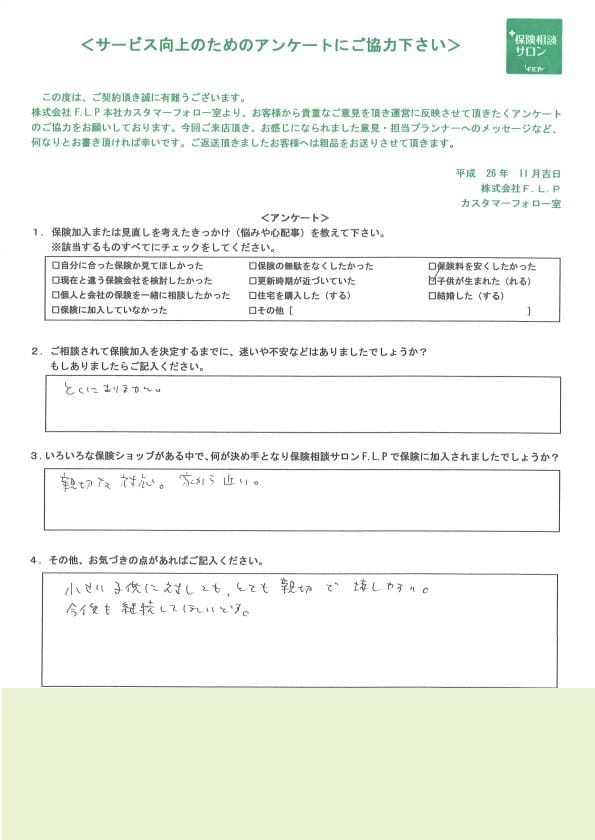 ＜サービス向上のためのアンケートにご協力下さい＞
保険相談
サロン
F.L.P
この度は、ご契約頂き誠に有難うございます。
株式会社F.L.P本社カスタマーフォロー室より、お客様から貴重なご意見を頂き運営に反映させて頂きたくアンケート
のご協力をお願いしております。今回ご来店頂き、お感じになられました意見・担当プランナーへのメッセージなど、
何なりとお書き頂ければ幸いです。ご返送頂きましたお客様へは粗品をお送りさせて頂きます。
平成 26年 11月吉日
株式会社F.L.P
カスタマーフォロー室
＜アンケート＞
1．保険加入または見直しを考えたきっかけ（悩みや心配事）を教えて下さい。
※該当するものすべてにチェックをしてください。
□自分に合った保険か見てほしかった □保険の無駄をなくしたかった □保険料を安くしたかった
□現在と違う保険会社を検討したかった □更新時期が近づいていた ☑子供が生まれた（れる）
□個人と会社の保険を一緒に相談したかった □住宅を購入した（する） □結婚した（する）
□保険に加入していなかった □その他［ ］
2．ご相談されて保険加入を決定するまでに、迷いや不安などはありましたでしょうか？
もしありましたらご記入ください。
とくにありません。
3．いろいろな保険ショップがある中で、何が決め手となり保険相談サロンF.L.Pで保険に加入されましたでしょうか？
親切な対応。家から近い。
4．その他、お気づきの点があればご記入ください。
小さい子供に対しても、とても親切で
今後も継続してほしいです。